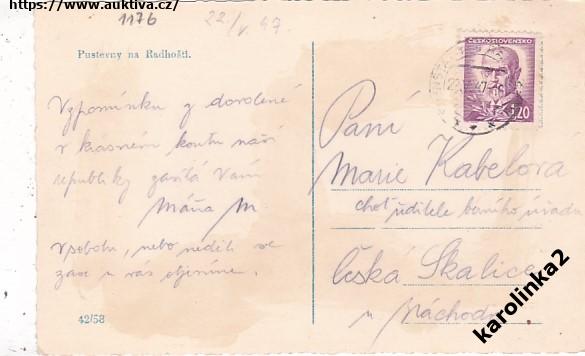 https://www.auktiva.cz/
1176
22/V. 47
Pustevny na Radhošti.
ČESKOSLOVENSKO
Vzpomínku z dovolené
v krásném koutu naší
republiky zasílá Vám
Máňa M.
V sobotu, nebo neděli se
zase u vás objevíme.
42/58
Paní
Marie Kabelova
choť ředitele berního úřadu
Česká Skalice
u Náchoda
karolinka2